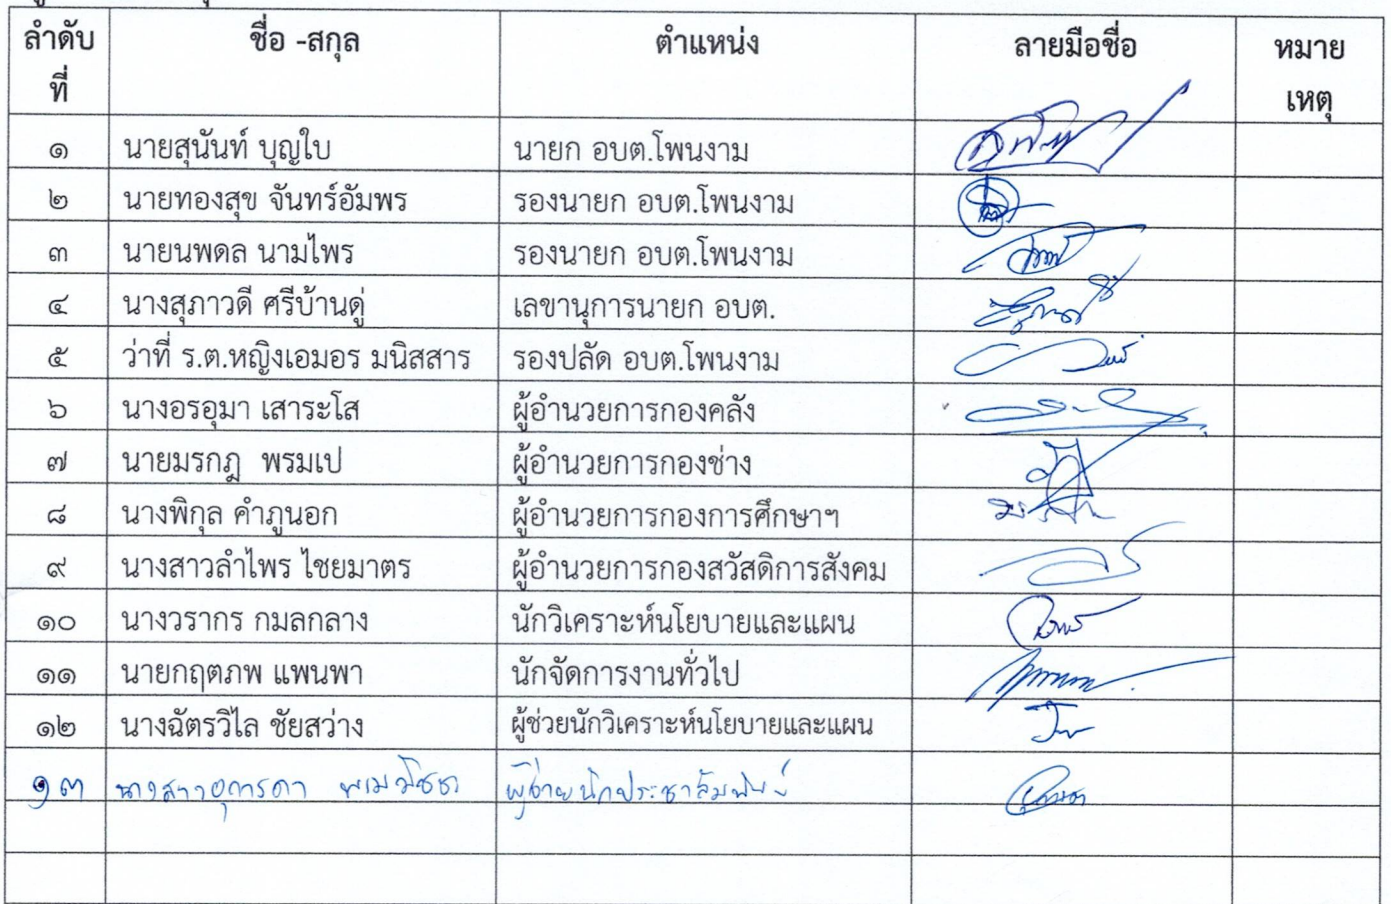 ลำดับ ชื่อ -สกุล ตำแหน่ง ลายมือชื่อ หมาย
ที่ เหตุ
๑ นายสุนันท์ บุญใบ นายก อบต.โพนงาม
๒ นายทองสุข จันทร์อัมพร รองนายก อบต.โพนงาม
๓ นายนพดล นามไพร รองนายก อบต.โพนงาม
๔ นางสุภาวดี ศรีบ้านดู่ เลขานุการนายก อบต.
๕ ว่าที่ ร.ต.หญิงเอมอร มนิสสาร รองปลัด อบต.โพนงาม
๖ นางอรอุมา เสาระโส ผู้อำนวยการกองคลัง
๗ นายมรกฎ พรมเป ผู้อำนวยการกองช่าง
๘ นางพิกุล คำภูนอก ผู้อำนวยการกองการศึกษาฯ
๙ นางสาวลำไพร ไชยมาตร ผู้อำนวยการกองสวัสดิการสังคม
๑๐ นางวรากร กมลกลาง นักวิเคราะห์นโยบายและแผน
๑๑ นายกฤตภพ แพนพา นักจัดการงานทั่วไป
๑๒ นางฉัตรวิไล ชัยสว่าง ผู้ช่วยนักวิเคราะห์นโยบายและแผน
๑๓ นางสาว ผู้ช่วยนักประชาสัมพันธ์